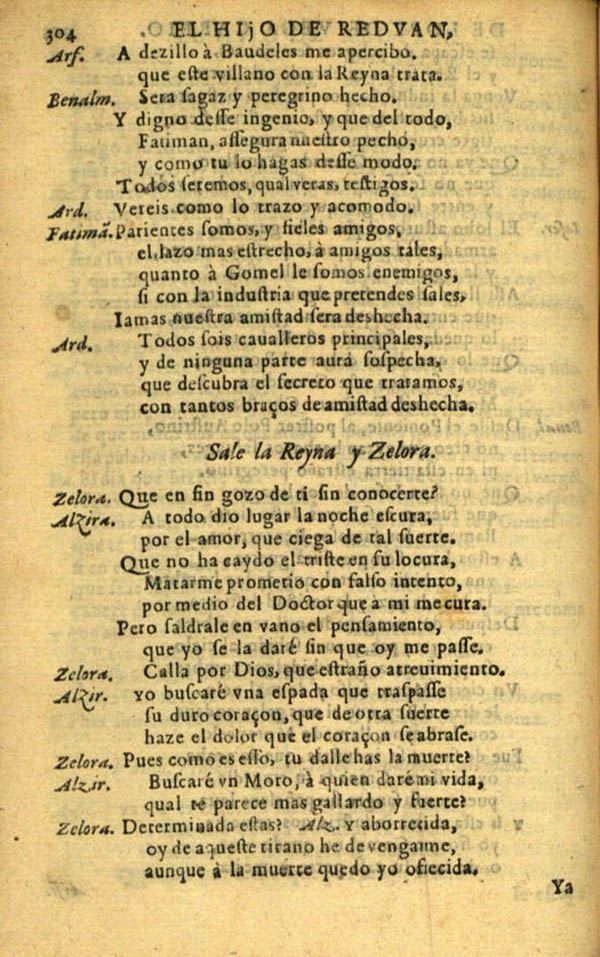 304 EL HIJO DE REDVAN,
Arf. A dezillo à Baudeles me apercibo.
que este villano con la Reyna trata.
Benalm. Sera sagaz y peregrino hecho.
Y digno desse ingenio, y que del todo,
Fatiman, assegura nuestro pecho,
y como tu lo hagas desse modo.
Todos seremos, qual veras, testigos.
Ard. Vereis como lo trazo y acomodo.
Fatimã. Parientes somos, y fieles amigos,
el lazo mas estrecho, à amigos tales,
quanto à Gomel le somos enemigos,
si con la industria que pretendes sales,
Iamas nuestra amistad sera deshecha.
Ard. Todos sois caualleros principales,
y de ninguna parte aurá sospecha,
que descubra el secreto que tratamos,
con tantos braços de amistad deshecha.
Sale la Reyna y Zelora.
Zelora. Que en fin gozo de ti sin conocerte?
Alzira. A todo dio lugar la noche escura,
por el amor, que ciega de tal suerte.
Que no ha caydo el triste en su locura,
Matarme prometio con falso intento,
por medio del Doctor que a mi me cura.
Pero saldrale en vano el pensamiento,
que yo se la daré sin que oy me passe.
Zelora. Calla por Dios, que estraño atreuimiento.
Alzir. yo buscaré vna espada que traspasse
su duro coraçon, que de otra suerte
haze el dolor que el coraçon se abrase.
Zelora. Pues como es esso, tu dalle has la muerte?
Alzir. Buscaré vn Moro, à quien daré mi vida,
qual te parece mas gallardo y fuerte?
Zelora. Determinada estas? Alz. Y aborrecida,
oy de aqueste tirano he de vengarme,
aunque à la muerte quedo yo ofrecida.
Ya